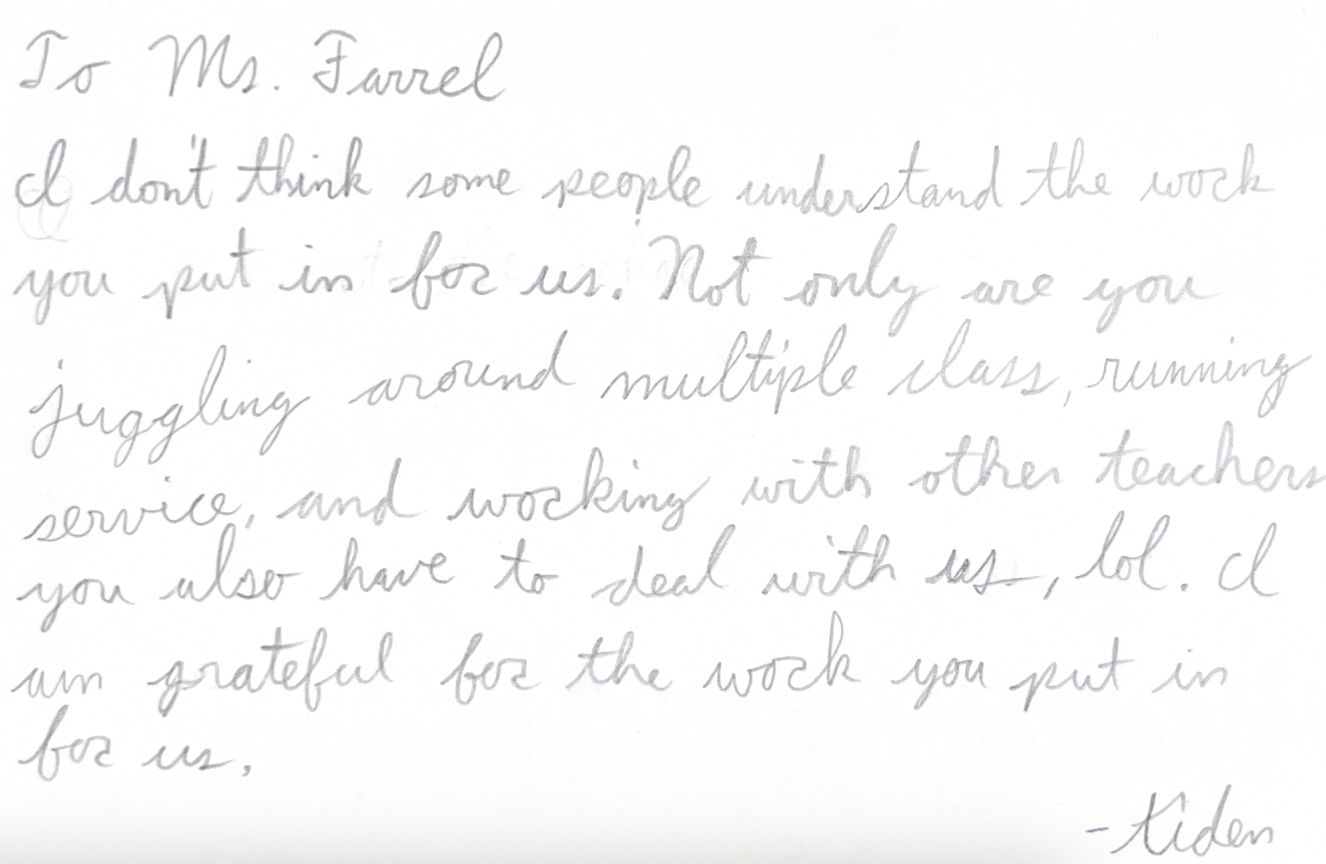 To Ms. Farrel
I don't think some people understand the work
you put in for us. Not only are you
juggling around multiple class, running
service, and working with other teachers
you also have to deal with us, lol. I
am grateful for the work you put in
for us.
-Kiden